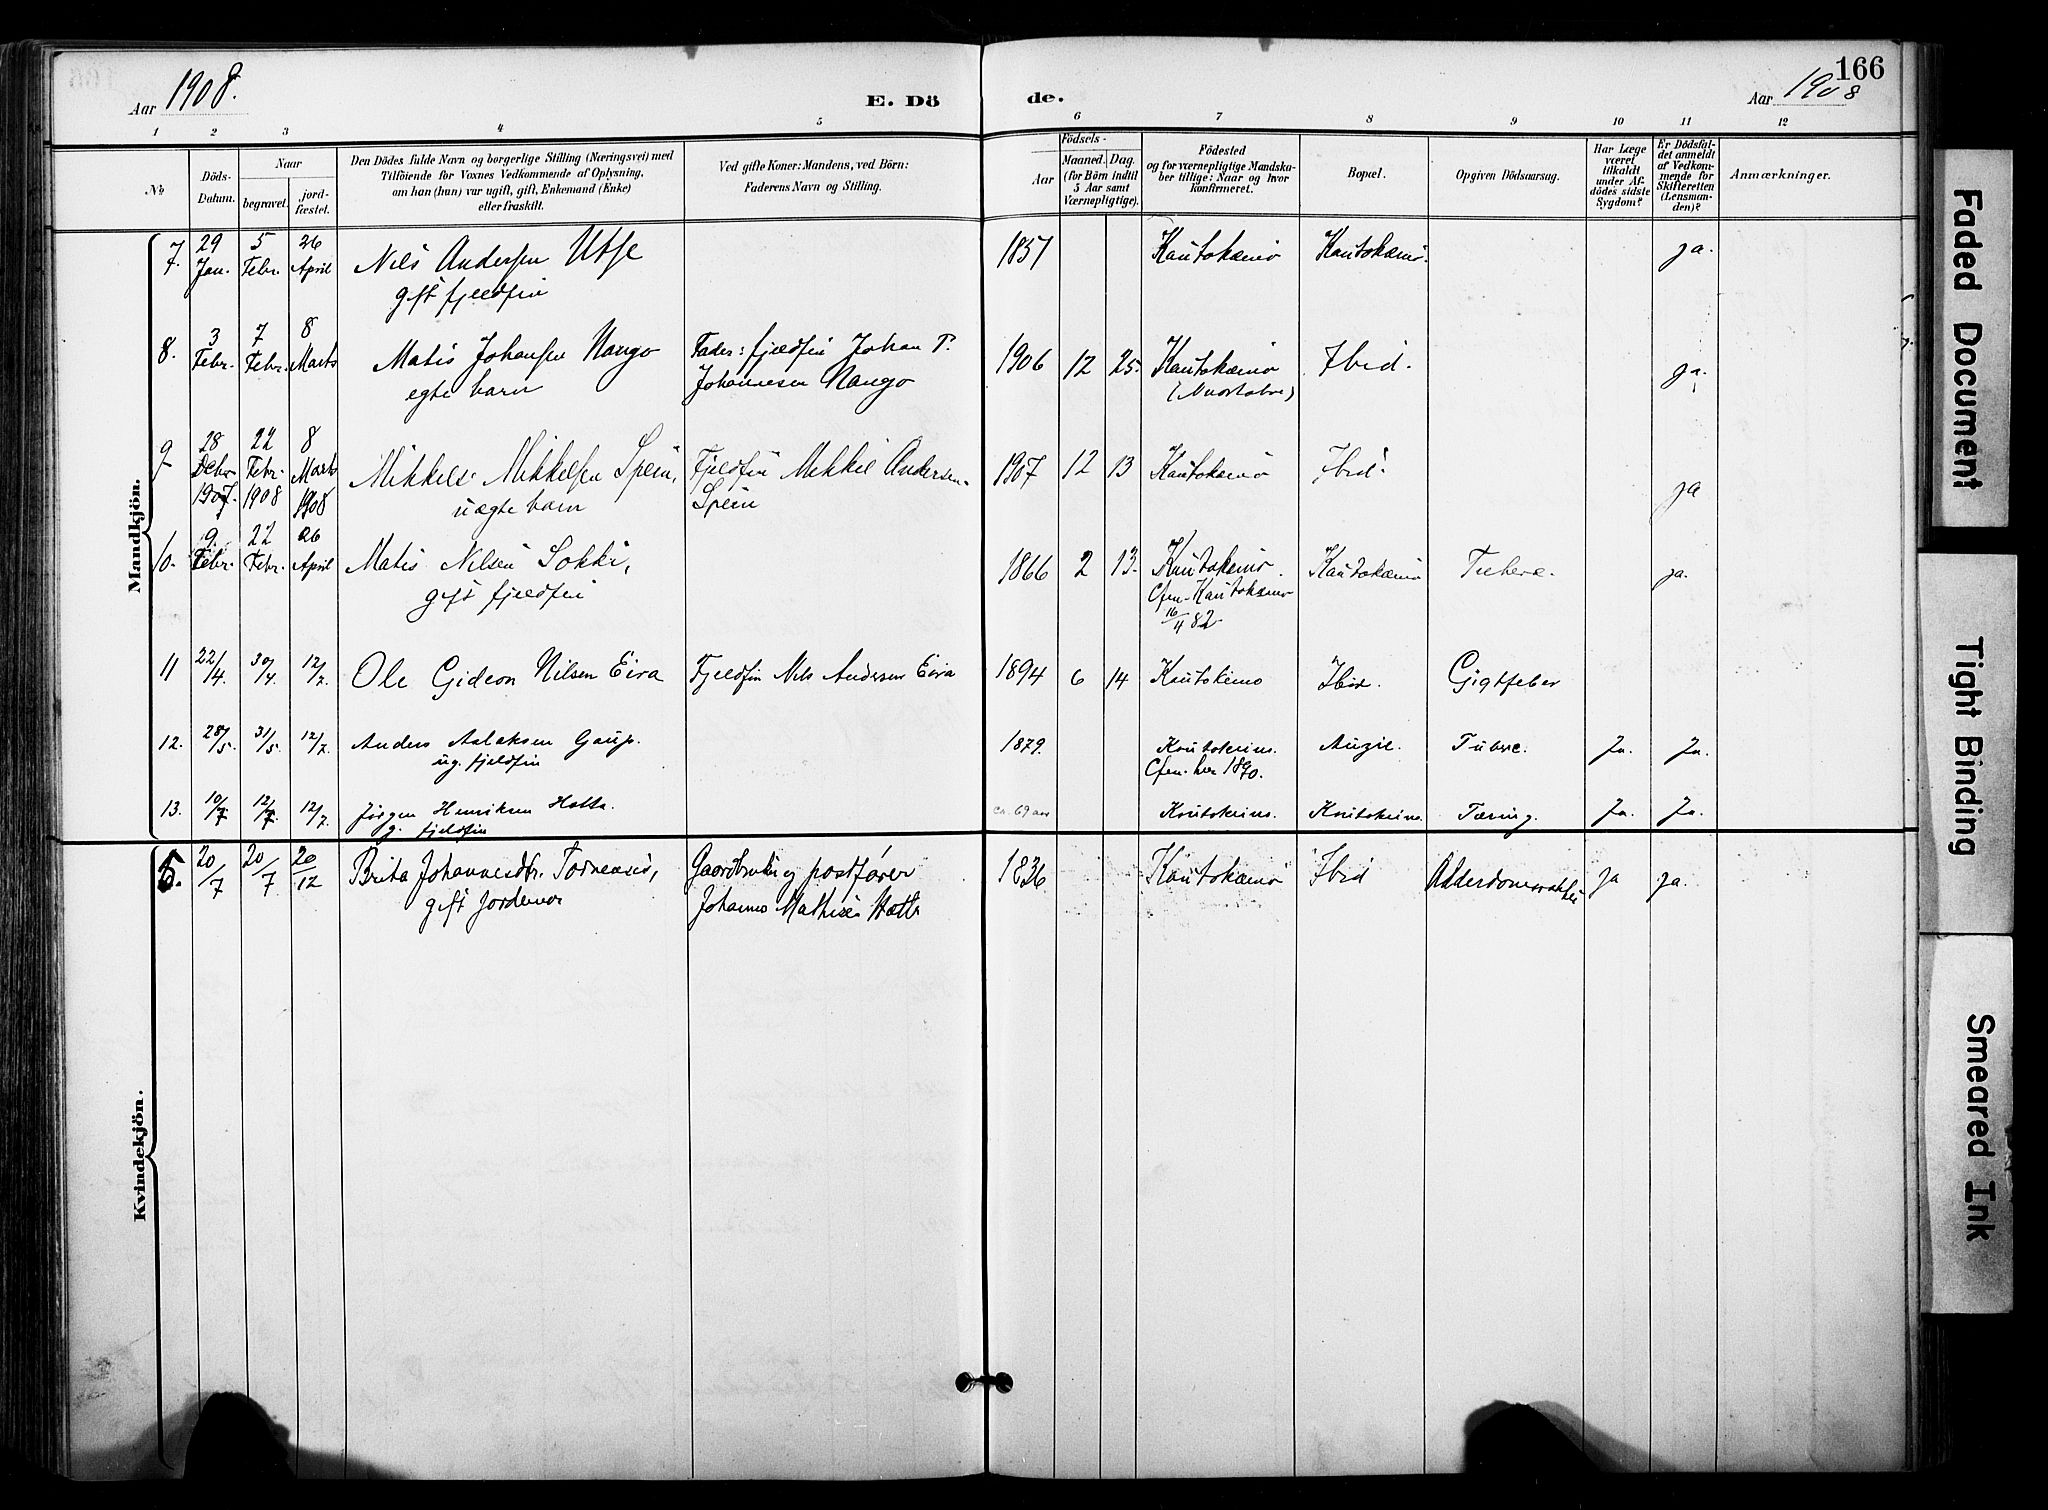 Aar 1908.
E. Dö
de.
Aar 1908
166
1 2 3 4 5 6 7 8 9 10 11 12
No
Döds-
Datum.
Naar
begravet.
jord-
fæstet.
Den Dödes fulde Navn og borgerlige Stilling (Næringsvei) med
Tilföiende for Voxnes Vedkommende af Oplysning,
om han (hun) var ugift, gift, Enkemand (Enke)
eller fraskilt.
Ved gifte Koner: Mandens, ved Börn:
Faderens Navn og Stilling.
Födsels-
Aar
Maaned. Dag.
(for Börn indtil
5 Aar samt
Værnepligtige).
Födested
og for værnepligtige Mandska-
ber tillige: Naar og hvor
konfirmeret.
Bopæl.
Opgiven Dödsaarsag.
Har Læge
været
tilkaldt
under Af-
dödes sidste
Sygdom?
Er Dödsfal-
det anmeldt
af Vedkom-
mende for
Skifteretten
(Lensman-
den)?
Anmærkninger.
Mandkjön.
7. 29 Jan. 5 Febr. 26 April Nils Andersen Utse 1857 Kautokæino Kautokæino. ja.
gift fjeldfin
8. 3 Febr. 7 Febr. 8 Marts Matis Johansen Nango Fader: fjeldfin Johan P. 1906 12 25. Kautokæino Ibid. ja.
egte barn Johannesen Nango
9 28 Debr 1907. 22 Febr. 1908 8 Marts 1908 Mikkel Mikkelsen Spein, Fjeldfin Mikkel Andersen 1907 12 13 Kautokæino Ibid. ja
uægte barn Spein
10. 9. Febr. 22 Febr. 26 April Matis Nilsen Sokki, 1866 2 13. Kautokæino. Kautokæino Tuberc. ja.
gift fjeldfin Cfen. Kautokæino
16/4 82
11 22/4. 30/4. 12/7. Ole Gideon Nilsen Eira Fjeldfin Nils Andersen Eira 1894 6 14 Kautokeino Ibid. Gigtfeber
12. 28/5. 31/5. 12/7. Anders Aslaksen Gaup. 1879. Kautokeino. Auzie. Tuberc. Ja. Ja.
ug. fjeldfin Cfen. her 1890.
13. 10/7. 12/7. 12/7. Jörgen Henriksen Hætta. ca. 69 aar Kautokeino. Kautokeino. Tæring. Ja. Ja.
g. fjeldfin
Kvindekjön.
5. 20/7 20/7 20/12 Brita Johannesdtr. Torneensis, Gaardbruker og postfører 1836 Kautokæino Ibid Alderdomssvakhet ja ja.
gift Johannes Mathisen Hætta
Faded Document
Tight Binding
Smeared Ink